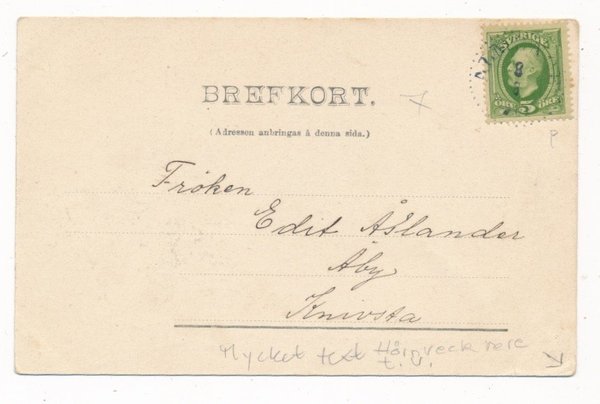 SVERIGE
5
ÖRE ÖRE
BREFKORT.
(Adressen anbringas å denna sida.)
Fröken
Edit Åslander
Åby
Knivsta
Mycket text Hörnveck nere
t.v.